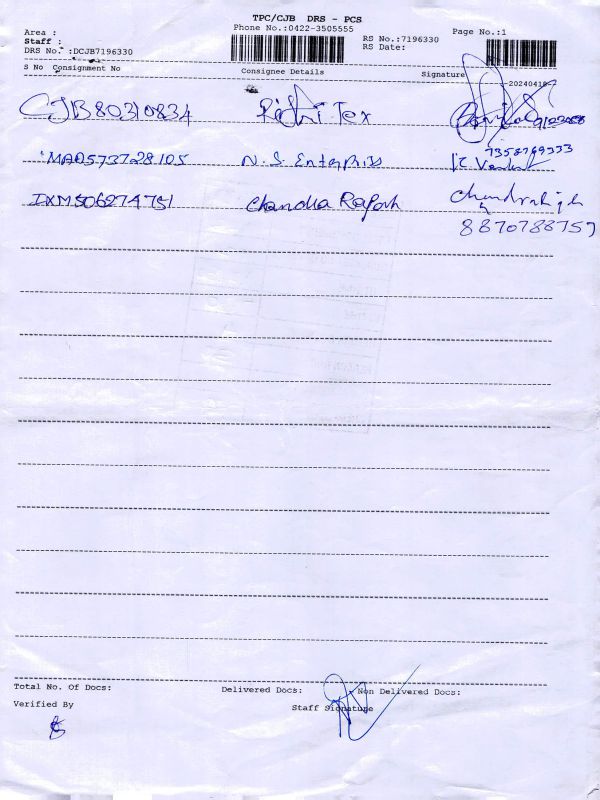 TPC/CJB DRS - PCS
Area : Phone No.:0422-3505555 Page No.:1
Staff : RS No.:7196330
DRS No. :DCJB7196330 RS Date:
S No Consignment No Consignee Details Signature
20240416-7
CJB80310834 Rishi Tex
MAA573728105 N. S. Enterpriss 7358799333 K. Venkat
IXM506274751 Chandra Rajesh
8870788759
Total No. Of Docs: Delivered Docs: Non Delivered Docs:
Verified By Staff Signature